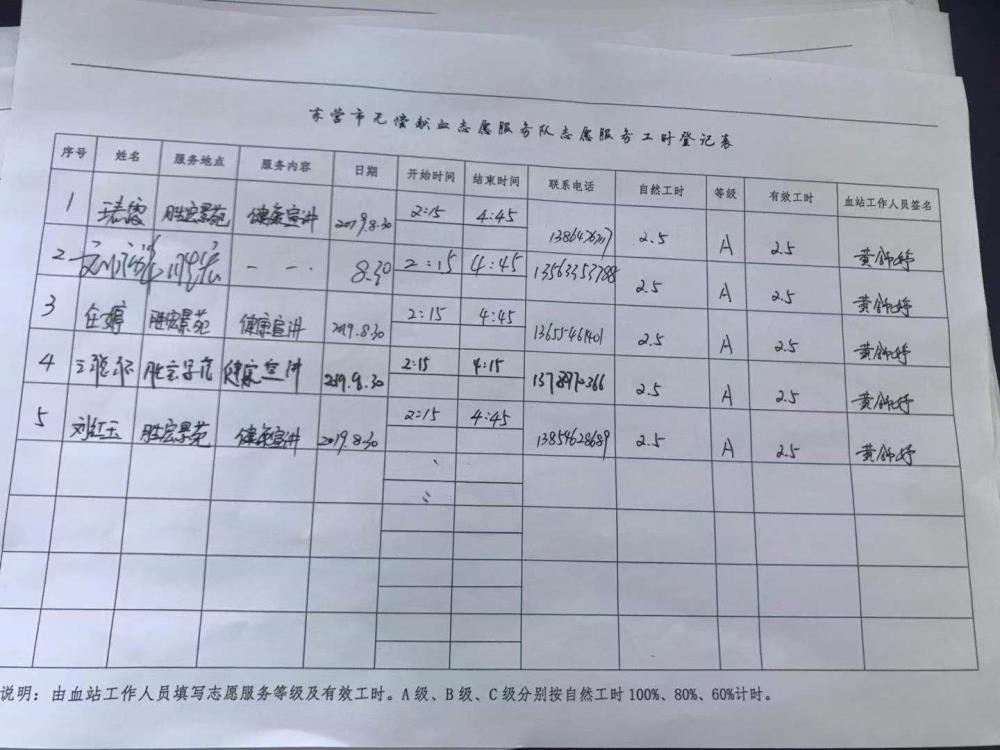 东营市无偿献血志愿服务队志愿服务工时登记表
序号 姓名 服务地点 服务内容 日期 开始时间 结束时间 联系电话 自然工时 等级 有效工时 血站工作人员签名
1 胜宏景苑 健康宣讲 2019.8.30 2:15 4:45 2.5 A 2.5
2 8.30 2:15 4:45 13563353788 2.5 A 2.5
3 任婷 胜宏景苑 健康宣讲 2019.8.30 2:15 4:45 13655461401 2.5 A 2.5
4 胜宏景苑 健康宣讲 2019.8.30 2:15 4:15 2.5 A 2.5
5 刘红玉 胜宏景苑 健康宣讲 2019.8.30 2:15 4:45 13854628689 2.5 A 2.5
说明：由血站工作人员填写志愿服务等级及有效工时。A级、B级、C级分别按自然工时100%、80%、60%计时。